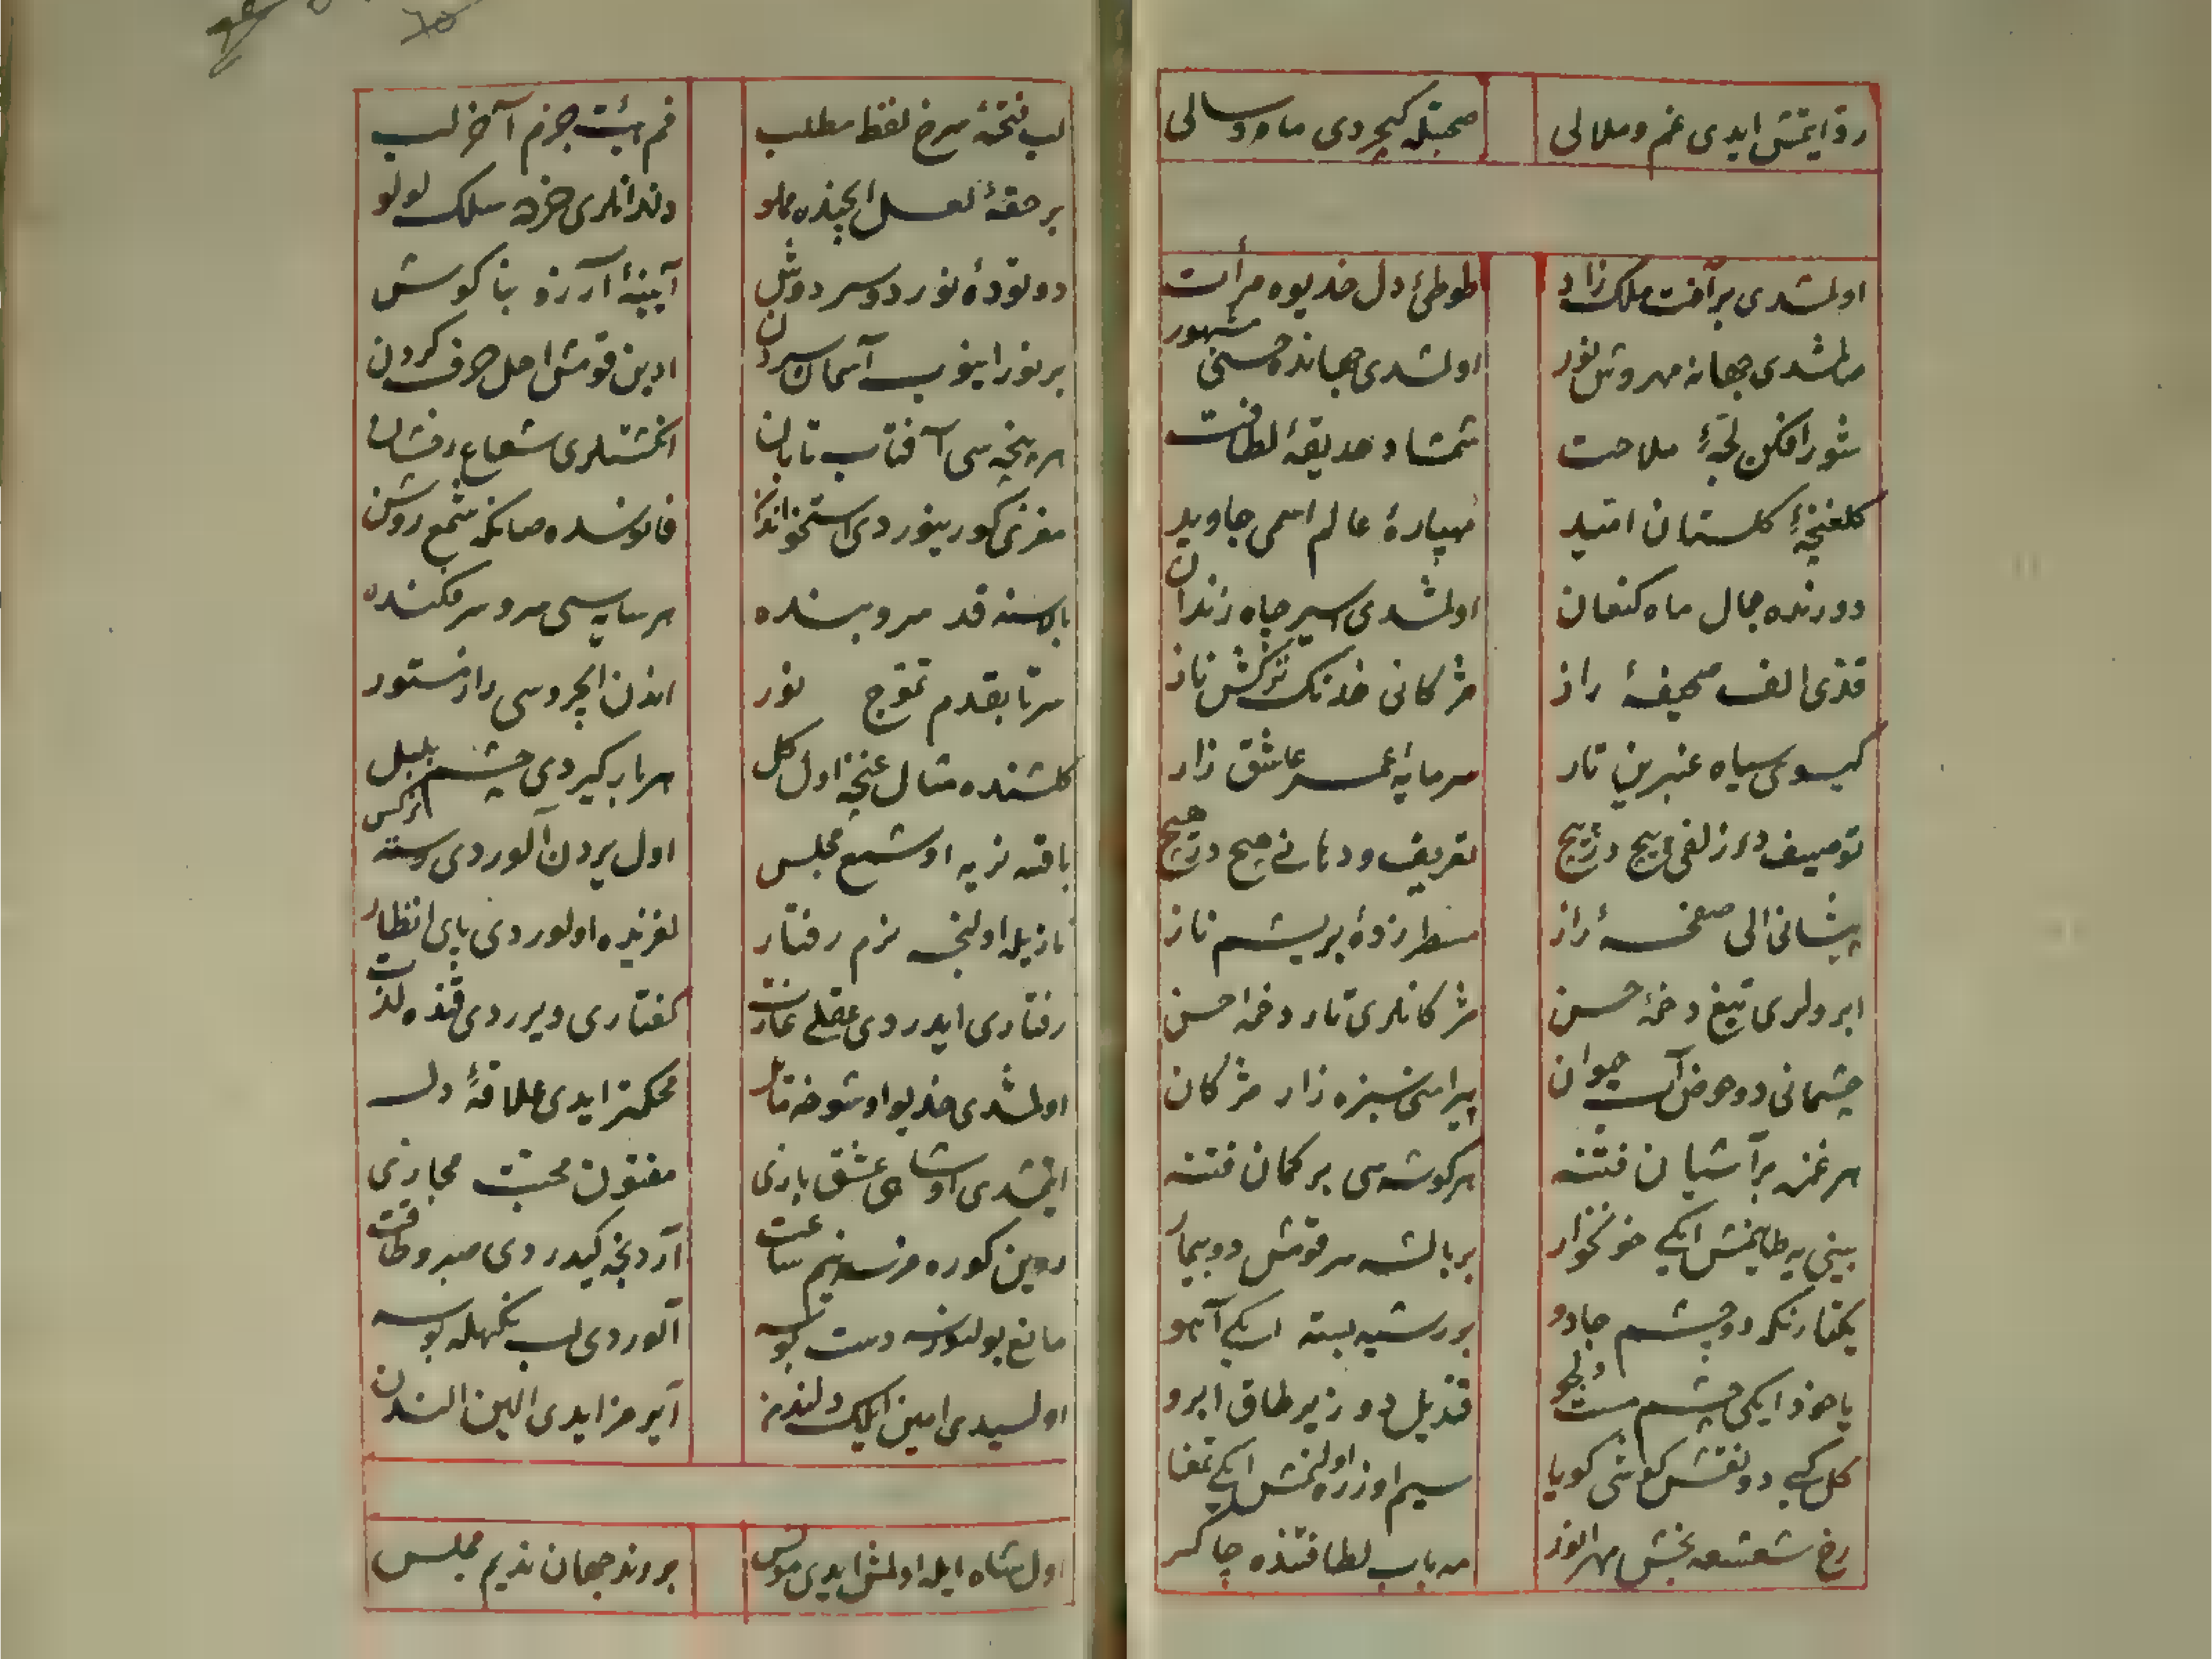 رد ایتمش ایدی غم و ملالی
صحبتله کچردی ماه و سالی
اولمشدی بر آفت ملک زاد
طوطئ دل خدیوه مرأت
صالمشدی جهانه مهر وش نور
اولمشدی جهانده حسنی مشهور
شور افکن لجهٔ ملاحت
شمشاد حدیقهٔ لطافت
کلغنچهٔ کلستان امید
سیپارهٔ عالم اسمی جاوید
دورنده جمال ماه کنعان
اولمشدی اسیر چاه زندان
قدی الف صحیفهٔ راز
مژکانی خدنک ترکش ناز
کیسوی سیاه عنبرین تار
سرمایهٔ عمر عاشق زار
توصیف در زلفی پیچ در پیچ
تعریف و دهانی هیچ در هیچ
پیشانی الی صفحهٔ راز
مسطر زدهٔ بریشم ناز
ابرولری تیغ دخمهٔ حسن
مژکانلری تار دخمهٔ حسن
چشمانی دو حوض آب حیوان
پیرامنی سبزه زار مژکان
هر غمزه بر آشیان فتنه
هر کوشه سی بر کمان فتنه
بینی یه طایمش ایکی خونخوار
بر بالشه سر قومش دو بیمار
یکتا رنکه دو چشم جادو
بر رشته بسته ایکی آهو
یاخود ایکی چشم مست دلجو
قندیل دو زیر طاق ابرو
کل کبی دو نقش کوشی کویا
سیم اوزره اولنمش ایکی تمغا
رخ شعشعه بخش مهر انور
مه باب لطافتنده چاکر
لب نسخهٔ سرخ لفظ مطلب
فم هیئت جزم آخر لب
بر حقهٔ لعل ایچنده مملو
دندانلری خرده سلک لولو
دو تودهٔ نور دو سر دوش
آیینهٔ آرزو بناکوش
بر نور اینوب آسماندن
ادین قومش اهل حرف کردن
هر پنجه سی آفتاب تابان
انکشتلری شعاع رفشان
مغزی کورینوردی استخواندن
فانوسده صانکه شمع روشن
بالاسنه قد سرو بنده
هر سایه سی سرو سر فکنده
سر تا بقدم تموج نور
اندن ایچروسی راز مستور
کلشنده مثال غنچه اول کل
هر بار کیردی چشم بلبل
باقسه نریه او شمع مجلس
اول یردن آلوردی رسته نرکس
نازیله اولنجه نرم رفتار
لغزنده اولوردی پای انظار
رفتاری ایدردی عقلی غارت
کفتاری ویرردی قنده لذت
اولمشدی خدیو او شوخه مائل
محکمتر ایدی علاقهٔ دل
ایتمشدی او شاهی عشق بازی
مفتون محبت مجازی
روین کورمزسه نیم ساعت
آردنجه کیدردی صبر و طاقت
مانع بولنورسه دست بوسه
آلوردی لب نکهله بوسه
اولسیدی امین ایلک دلندن
آیرمز ایدی الین الندن
اول شاه ایله اولمش ایدی مونس
بر رند جهان ندیم مجلس